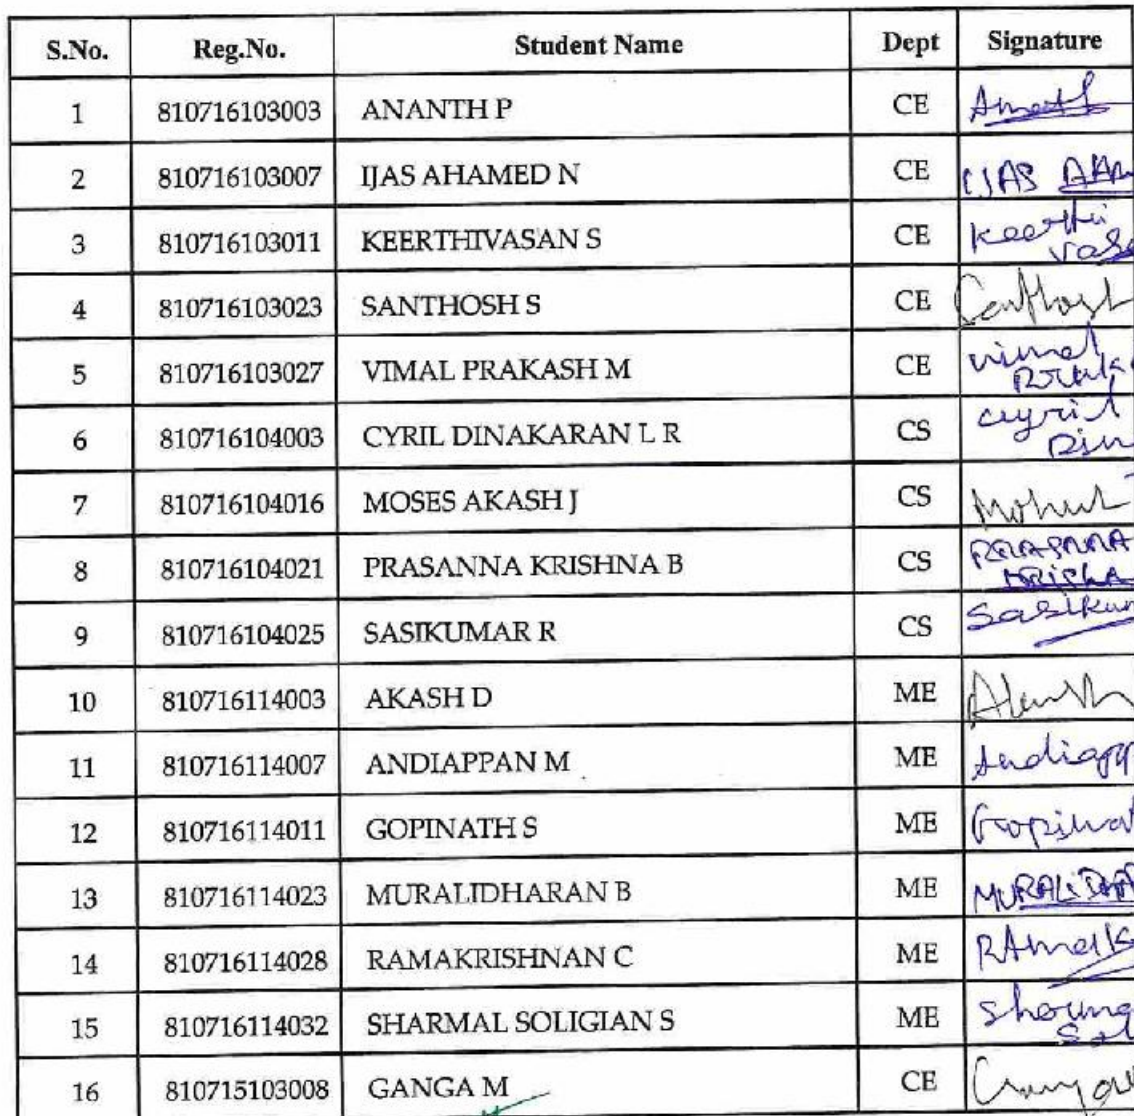 S.No. Reg.No. Student Name Dept Signature
1 810716103003 ANANTH P CE
2 810716103007 IJAS AHAMED N CE IJAS AHA
3 810716103011 KEERTHIVASAN S CE Keerthi
Vase
4 810716103023 SANTHOSH S CE Santhosh
5 810716103027 VIMAL PRAKASH M CE vimal
6 810716104003 CYRIL DINAKARAN L R CS cyril
Din
7 810716104016 MOSES AKASH J CS
8 810716104021 PRASANNA KRISHNA B CS PRASANNA
9 810716104025 SASIKUMAR R CS Sasikum
10 810716114003 AKASH D ME
11 810716114007 ANDIAPPAN M ME Andiapp
12 810716114011 GOPINATH S ME Gopinat
13 810716114023 MURALIDHARAN B ME MURALIDHA
14 810716114028 RAMAKRISHNAN C ME RAmak
15 810716114032 SHARMAL SOLIGIAN S ME Sharma
Sol
16 810715103008 GANGA M CE